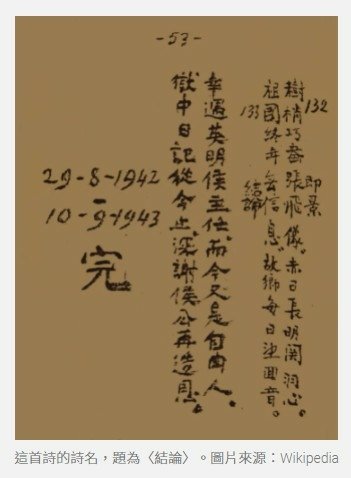 -53-
132 即景
樹梢巧畵張飛像。赤日長明関羽心。
祖國終年無信息。故鄉每日望囬音。
133 結論
幸遇英明侯主任。而今又是自由人。
獄中日記從今止。深謝侯公再造恩。
29-8-1942
-
10-9-1943
完
這首詩的詩名，題為〈結論〉。圖片來源：Wikipedia